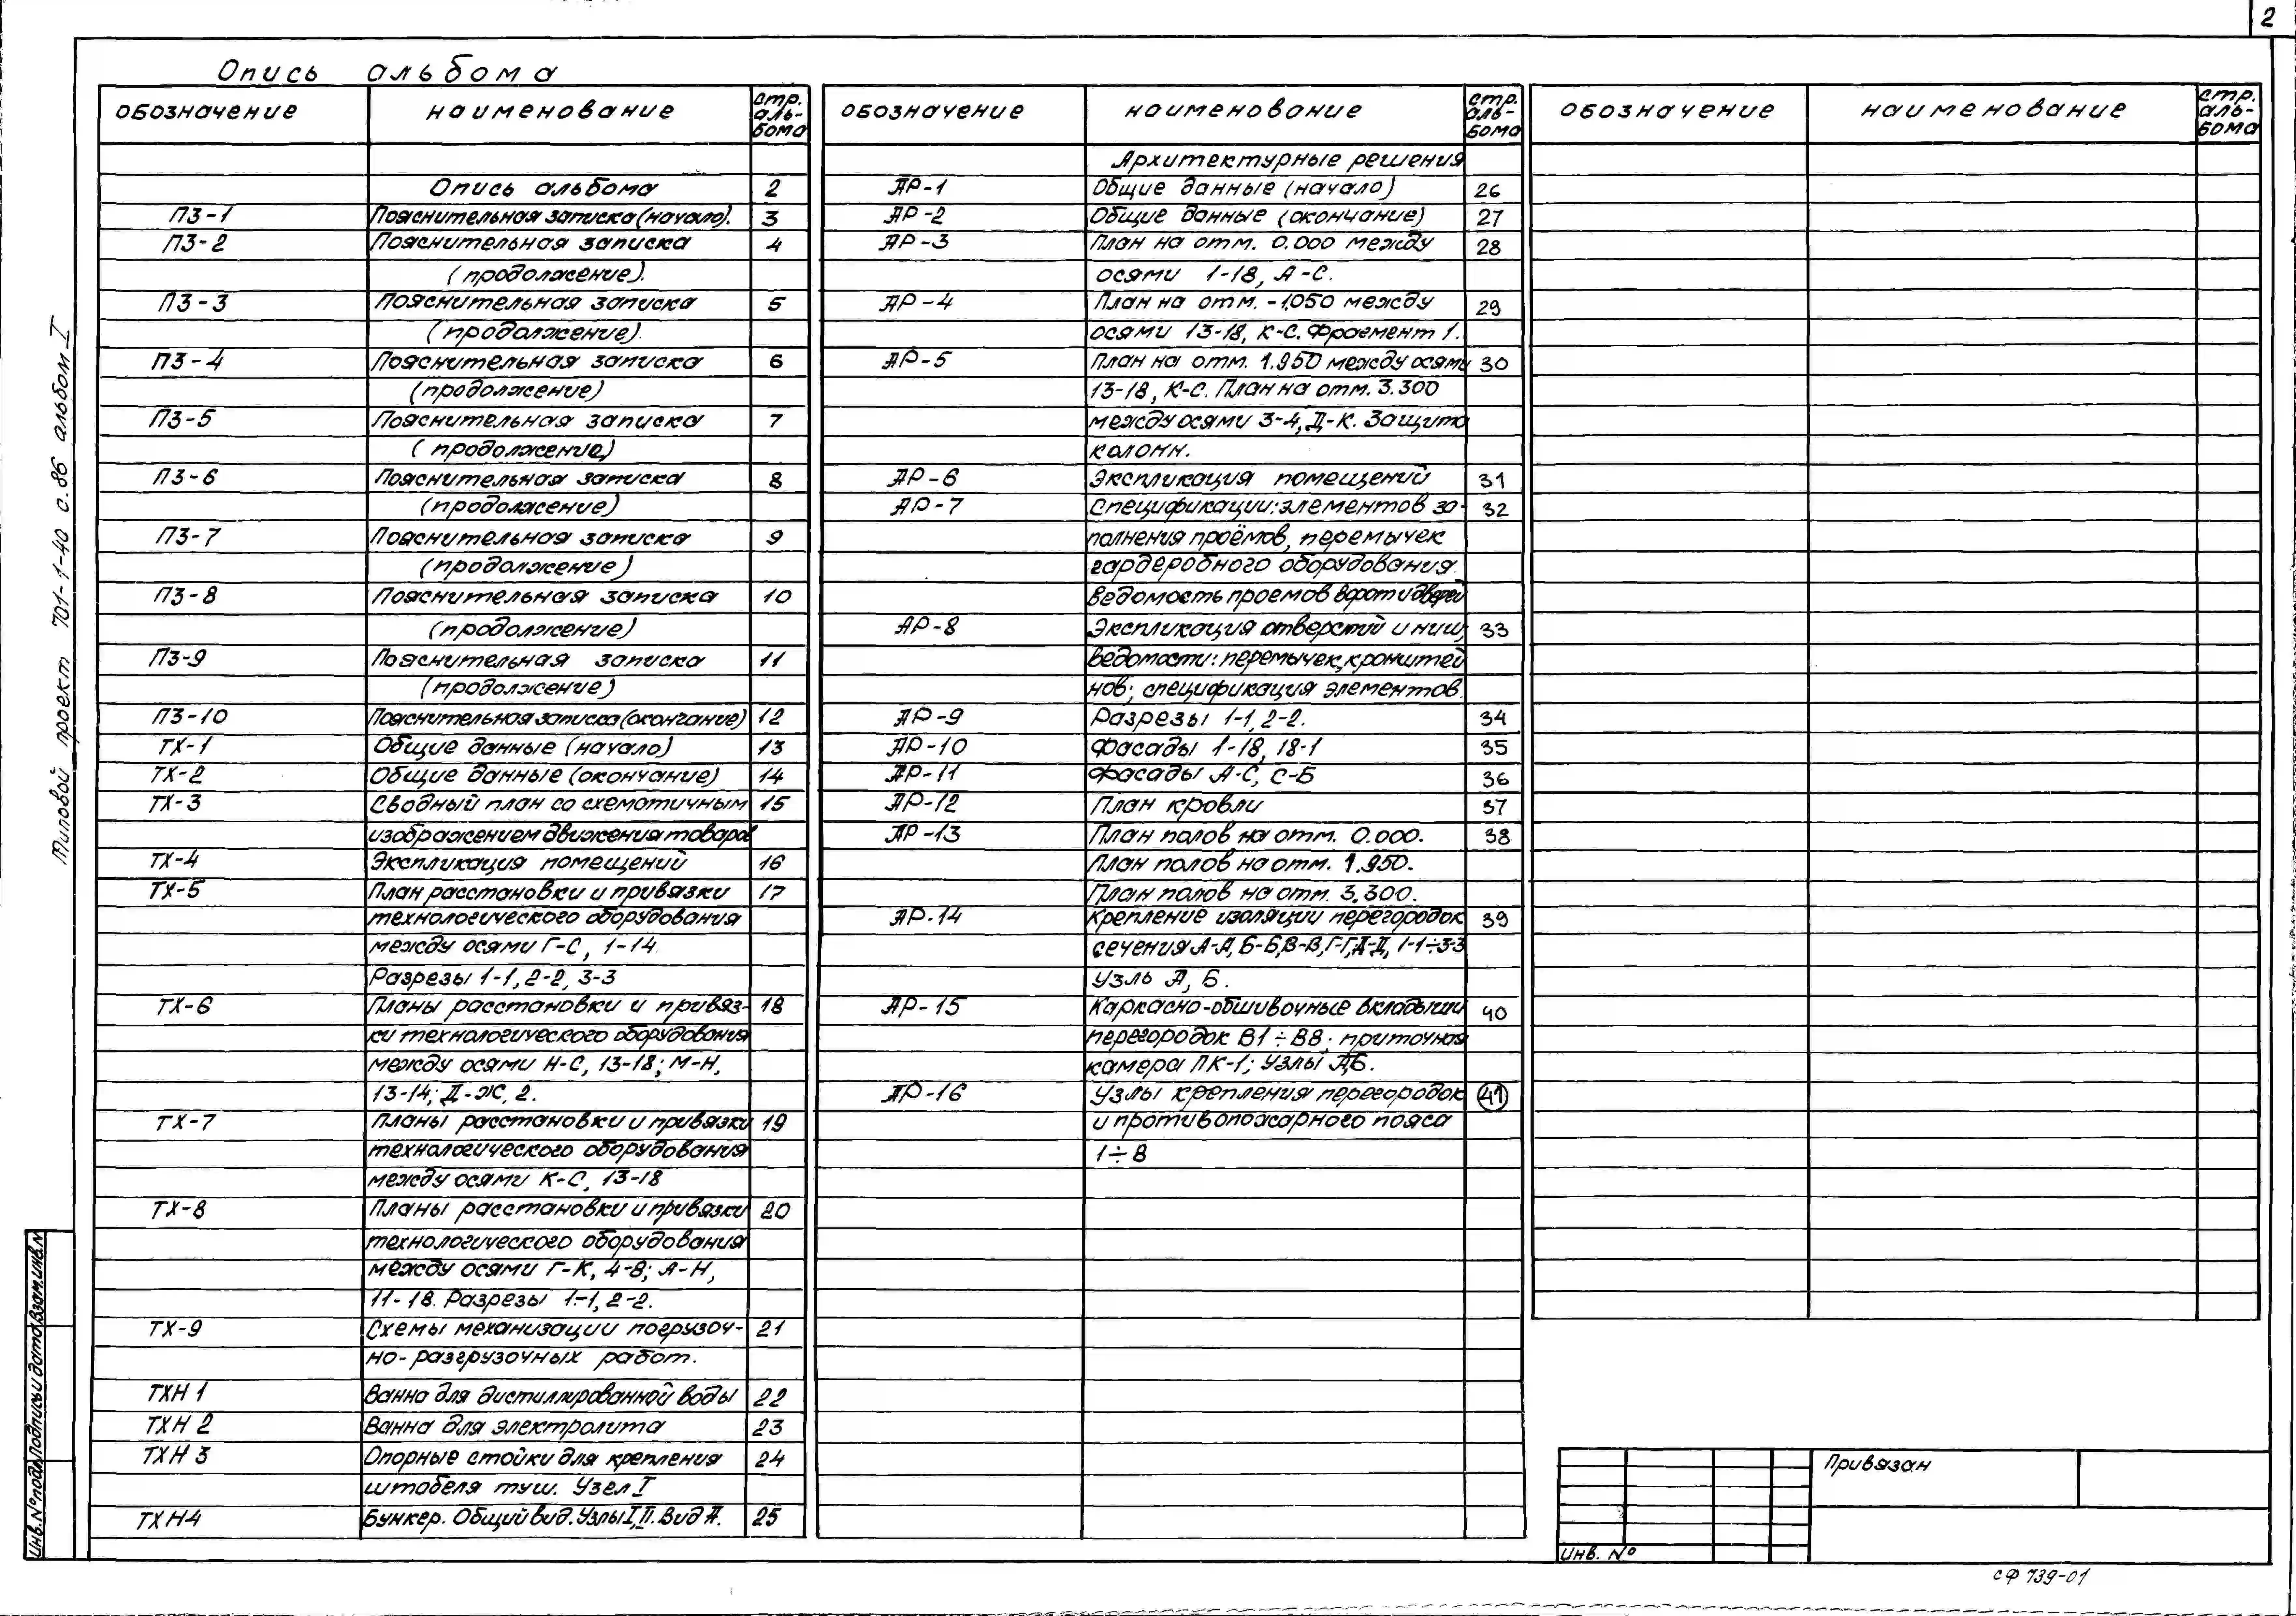 2
Опись альбома
обозначение наименование стр. аль-бома
Опись альбома 2
ПЗ-1 Пояснительная записка (начало). 3
ПЗ-2 Пояснительная записка 4
(продолжение).
ПЗ-3 Пояснительная записка 5
(продолжение).
ПЗ-4 Пояснительная записка 6
(продолжение)
ПЗ-5 Пояснительная записка 7
(продолжение)
ПЗ-6 Пояснительная записка 8
(продолжение)
ПЗ-7 Пояснительная записка 9
(продолжение)
ПЗ-8 Пояснительная записка 10
(продолжение)
ПЗ-9 Пояснительная записка 11
(продолжение)
ПЗ-10 Пояснительная записка (окончание) 12
ТХ-1 Общие данные (начало) 13
ТХ-2 Общие данные (окончание) 14
ТХ-3 Сводный план со схематичным 15
изображением движения товаров
ТХ-4 Экспликация помещений 16
ТХ-5 План расстановки и привязки 17
технологического оборудования
между осями Г-С, 1-14
Разрезы 1-1, 2-2, 3-3
ТХ-6 Планы расстановки и привяз- 18
ки технологического оборудования
между осями Н-С, 13-18; М-Н,
13-14; Д-Ж, 2.
ТХ-7 Планы расстановки и привязки 19
технологического оборудования
между осями К-С, 13-18
ТХ-8 Планы расстановки и привязки 20
технологического оборудования
между осями Г-К, 4-8; А-Н,
11-18. Разрезы 1-1, 2-2.
ТХ-9 Схемы механизации погрузоч- 21
но-разгрузочных работ.
ТХН 1 Ванна для дистиллированной воды 22
ТХН 2 Ванна для электролита 23
ТХН 3 Опорные стойки для крепления 24
штабеля туш. Узел I
ТХН4 Бункер. Общий вид. Узлы I, II. Вид А. 25
обозначение наименование стр. аль-бома
Архитектурные решения
АР-1 Общие данные (начало) 26
АР-2 Общие данные (окончание) 27
АР-3 План на отм. 0.000 между 28
осями 1-18, А-С.
АР-4 План на отм. -1,050 между 29
осями 13-18, К-С. Фрагмент 1.
АР-5 План на отм. 1.950 между осями 30
13-18, К-С. План на отм. 3.300
между осями 3-4, Д-К. Защита
колонн.
АР-6 Экспликация помещений 31
АР-7 Спецификации: элементов за- 32
полнения проёмов, перемычек
гардеробного оборудования.
Ведомость проемов ворот и дверей
АР-8 Экспликация отверстий и ниш, 33
ведомости: перемычек, кронштей
нов; спецификация элементов.
АР-9 Разрезы 1-1, 2-2. 34
АР-10 Фасады 1-18, 18-1 35
АР-11 Фасады А-С, С-Б 36
АР-12 План кровли 37
АР-13 План полов на отм. 0.000. 38
План полов на отм. 1.950.
План полов на отм. 3.300.
АР-14 Крепление изоляции перегородок 39
сечения А-А, Б-Б, В-В, Г-Г, Д-Д, 1-1÷3-3
Узлы А, Б.
АР-15 Каркасно-обшивочные вкладыши 40
перегородок В1÷В8; приточная
камера ПК-1; Узлы А,Б.
АР-16 Узлы крепления перегородок 41
и противопожарного пояса
1÷8
обозначение наименование стр. аль-бома
Типовой проект 701-1-40 с.86 альбом I
Инв.№подл. Подпись и дата Взам.инв.№
Привязан
Инв. №
СФ 739-01